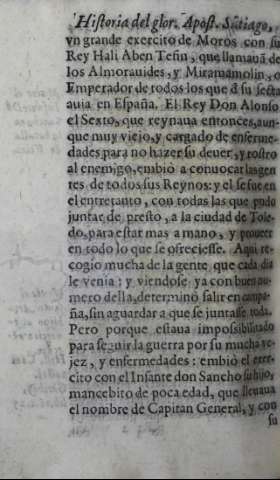 Historia del glor. Apost. Sãtiago,
vn grande exercito de Moros con su
Rey Hali Aben Tefin, que llamauã de
los Almorauides, y Miramamolin, o
Emperador de todos los que d̃ su secta
auia en España. El Rey Don Alonso
el Sexto, que reynaua entonces, aun-
que muy viejo, y cargado de enferme-
dades, para no hazer su deuer, y rostro
al enemigo, embiò a conuocar las gen
tes de todos sus Reynos: y el se fue en
el entretanto, con todas las que pudo
juntar de presto, a la ciudad de Tole-
do, para estar mas a mano, y proueer
en todo lo que se ofreciesse. Aqui re-
cogio mucha de la gente que cada dia
le venia: y viendose ya con buen nu-
mero della, determinò salir en campa-
ña, sin aguardar a que se juntasse toda.
Pero porque estaua impossibilitado
para seguir la guerra por su mucha ve-
jez, y enfermedades: embiò el exer-
cito con el Infante don Sancho su hijo,
mancebito de poca edad, que lleuaua
el nombre de Capitan General, y con
su